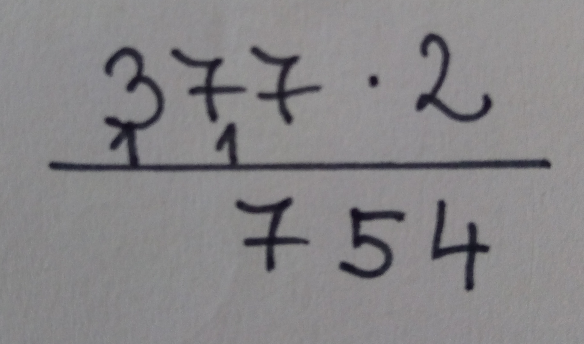 377 · 2
1 1
754